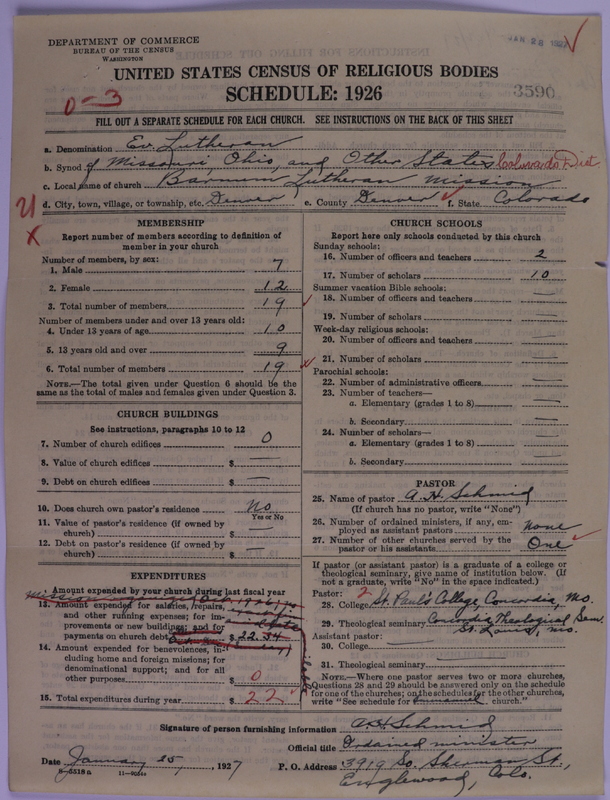 DEPARTMENT OF COMMERCE
BUREAU OF THE CENSUS
WASHINGTON
JAN 28 1927
UNITED STATES CENSUS OF RELIGIOUS BODIES
SCHEDULE: 1926
3590
0-3
FILL OUT A SEPARATE SCHEDULE FOR EACH CHURCH. SEE INSTRUCTIONS ON THE BACK OF THIS SHEET
a. Denomination Ev. Lutheran
b. Synod of Missouri Ohio, and Other States Colorado Dist
c. Local name of church Barnum Lutheran Mission
d. City, town, village, or township, etc. Denver e. County Denver f. State Colorado
U
X
MEMBERSHIP
Report number of members according to definition of member in your church
Number of members, by sex:
1. Male 7
2. Female 12
3. Total number of members 19
Number of members under and over 13 years old:
4. Under 13 years of age 10
5. 13 years old and over 9
6. Total number of members 19
NOTE.—The total given under Question 6 should be the
same as the total of males and females given under Question 3.
CHURCH BUILDINGS
See instructions, paragraphs 10 to 12
7. Number of church edifices 0
8. Value of church edifices $ —
9. Debt on church edifices $ —
10. Does church own pastor's residence No
Yes or No
11. Value of pastor's residence (if owned by
church) $ —
12. Debt on pastor's residence (if owned by
church) $ —
EXPENDITURES
Amount expended by your church during last fiscal year
13. Amount expended for salaries, repairs,
and other running expenses; for im-
provements or new buildings; and for
payments on church debt $ 22.34
14. Amount expended for benevolences, in-
cluding home and foreign missions; for
denominational support; and for all
other purposes $ 0
15. Total expenditures during year $ 22
CHURCH SCHOOLS
Report here only schools conducted by this church
Sunday schools:
16. Number of officers and teachers 2
17. Number of scholars 10
Summer vacation Bible schools:
18. Number of officers and teachers —
19. Number of scholars —
Week-day religious schools:
20. Number of officers and teachers —
21. Number of scholars —
Parochial schools:
22. Number of administrative officers —
23. Number of teachers—
a. Elementary (grades 1 to 8) —
b. Secondary —
24. Number of scholars—
a. Elementary (grades 1 to 8) —
b. Secondary —
PASTOR
25. Name of pastor A. H. Schmid
(If church has no pastor, write "None")
26. Number of ordained ministers, if any, em-
ployed as assistant pastors none
27. Number of other churches served by the
pastor or his assistants One
If pastor (or assistant pastor) is a graduate of a college or
theological seminary, give name of institution below. (If
not a graduate, write "No" in the space indicated.)
Pastor: 2
28. College St. Paul's College, Concordia, Mo.
29. Theological seminary Concordia Theological Sem.
St. Louis, Mo.
Assistant pastor:
30. College —
31. Theological seminary —
NOTE.—Where one pastor serves two or more churches,
Questions 28 and 29 should be answered only on the schedule
for one of the churches; on the schedules for the other churches,
write "See schedule for Immanuel church."
Signature of person furnishing information A. H. Schmid
Official title Ordained minister
Date January 25, 1927 P. O. Address 3919 So. Sherman St.,
Englewood, Colo.
8-5518a 11-9054